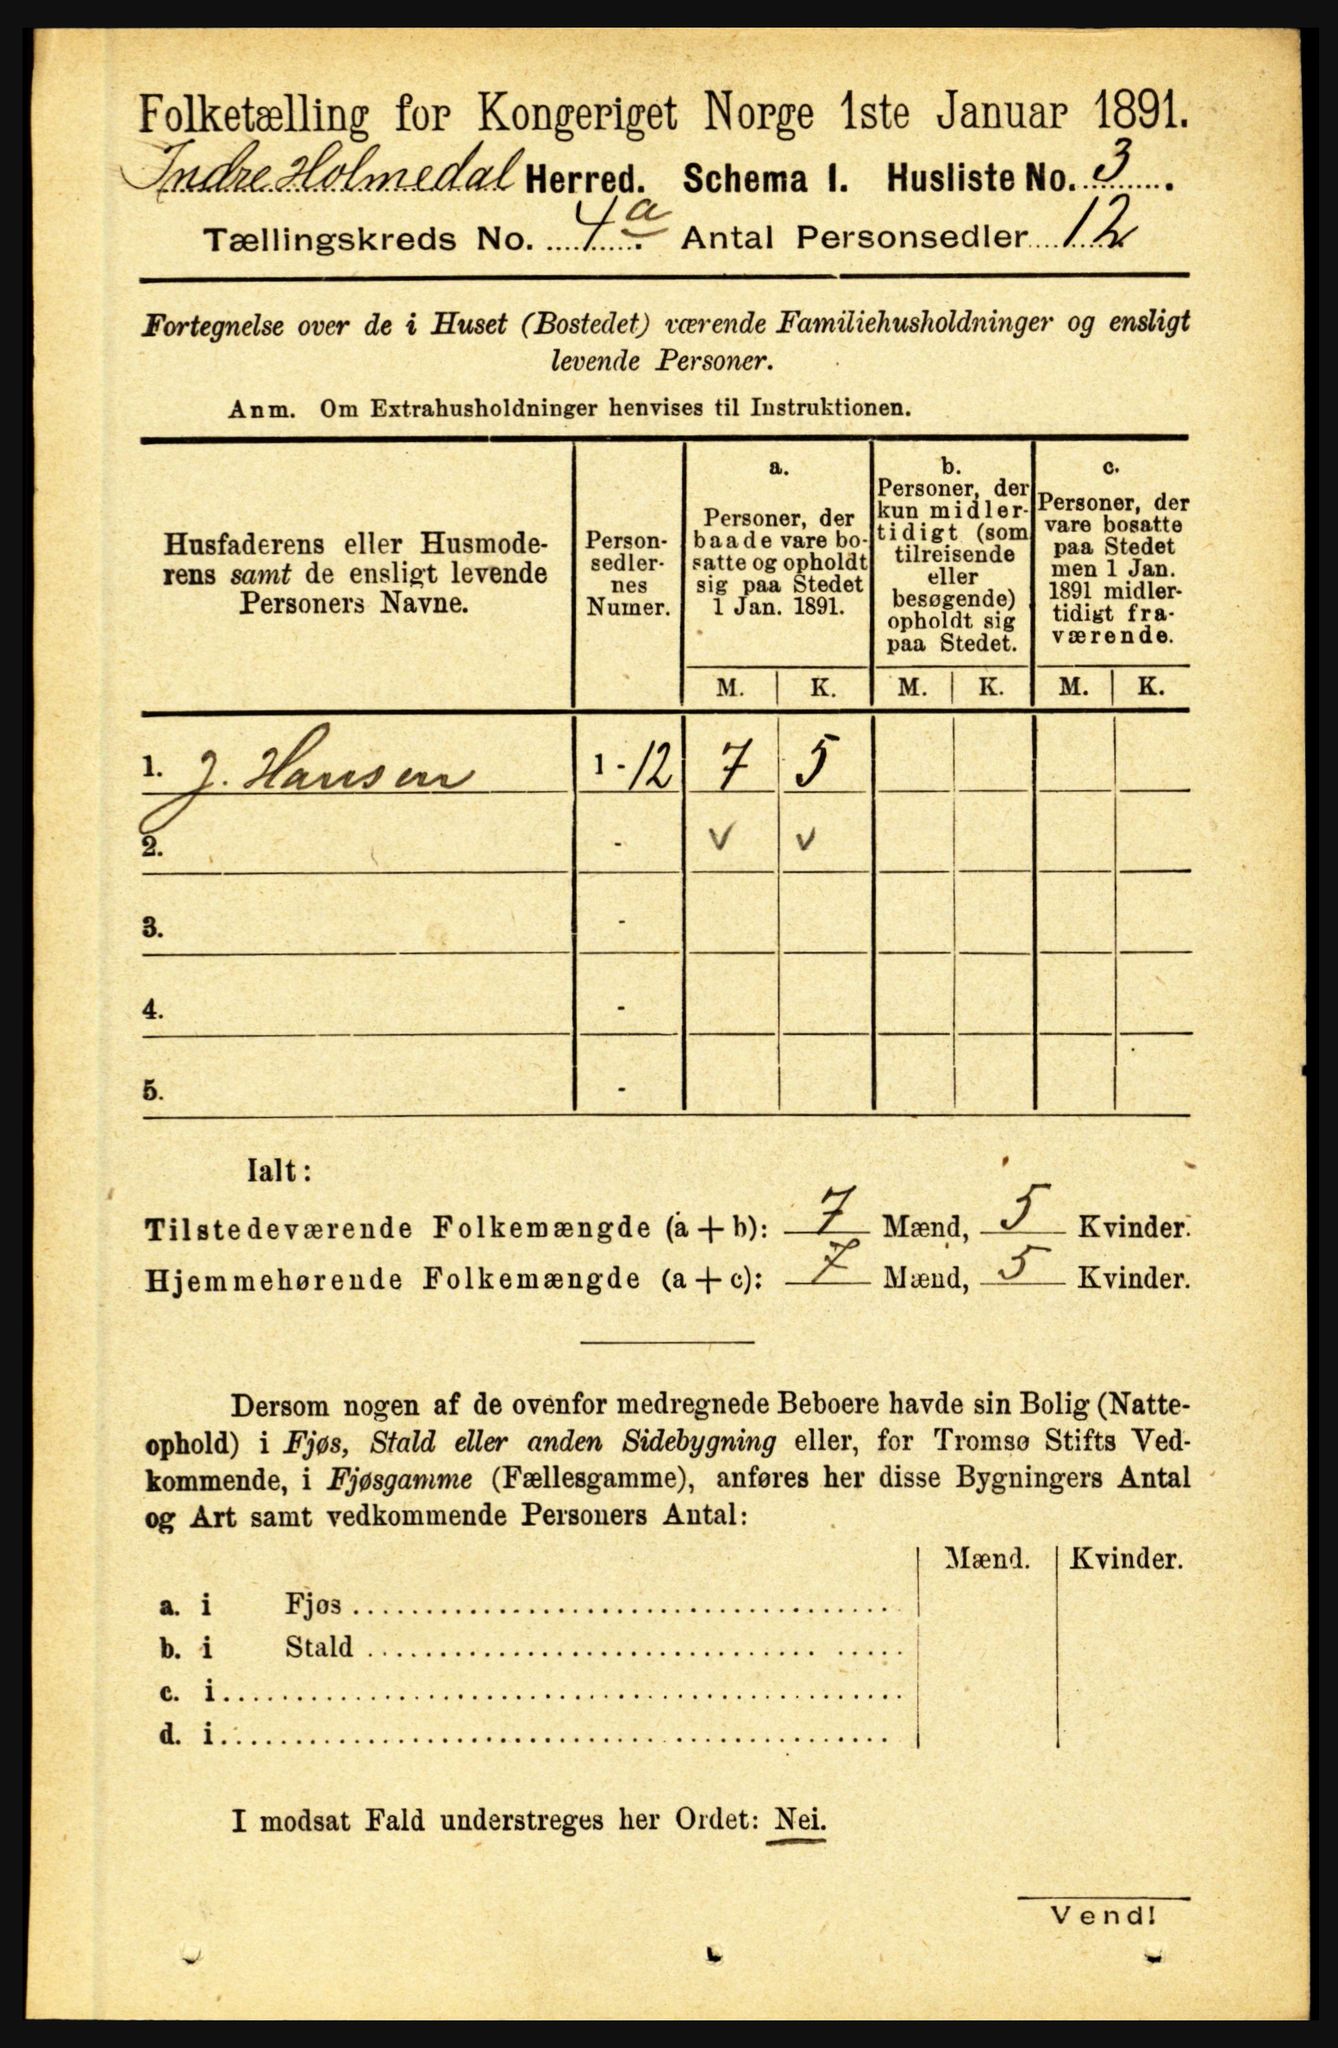 Folketælling for Kongeriget Norge 1ste Januar 1891.
Indre Holmedal Herred. Schema I. Husliste No. 3.
Tællingskreds No. 4a. Antal Personsedler 12
Fortegnelse over de i Huset (Bostedet) værende Familiehusholdninger og ensligt
levende Personer.
Anm. Om Extrahusholdninger henvises til Instruktionen.
Husfaderens eller Husmode-
rens samt de ensligt levende
Personers Navne.
Person-
sedler-
nes
Numer.
a.
Personer, der
baade vare bo-
satte og opholdt
sig paa Stedet
1 Jan. 1891.
b.
Personer, der
kun midler-
tidigt (som
tilreisende
eller
besøgende)
opholdt sig
paa Stedet.
c.
Personer, der
vare bosatte
paa Stedet
men 1 Jan.
1891 midler-
tidigt fra-
værende.
M. K. M. K. M. K.
1. J. Hansen 1 - 12 7 5
2. - v v
3. -
4. -
5. -
Ialt:
Tilstedeværende Folkemængde (a + b): 7 Mænd, 5 Kvinder.
Hjemmehørende Folkemængde (a + c): 7 Mænd, 5 Kvinder.
Dersom nogen af de ovenfor medregnede Beboere havde sin Bolig (Natte-
ophold) i Fjøs, Stald eller anden Sidebygning eller, for Tromsø Stifts Ved-
kommende, i Fjøsgamme (Fællesgamme), anføres her disse Bygningers Antal
og Art samt vedkommende Personers Antal:
Mænd. Kvinder.
a. i Fjøs
b. i Stald
c. i
d. i
I modsat Fald understreges her Ordet: Nei.
Vend!